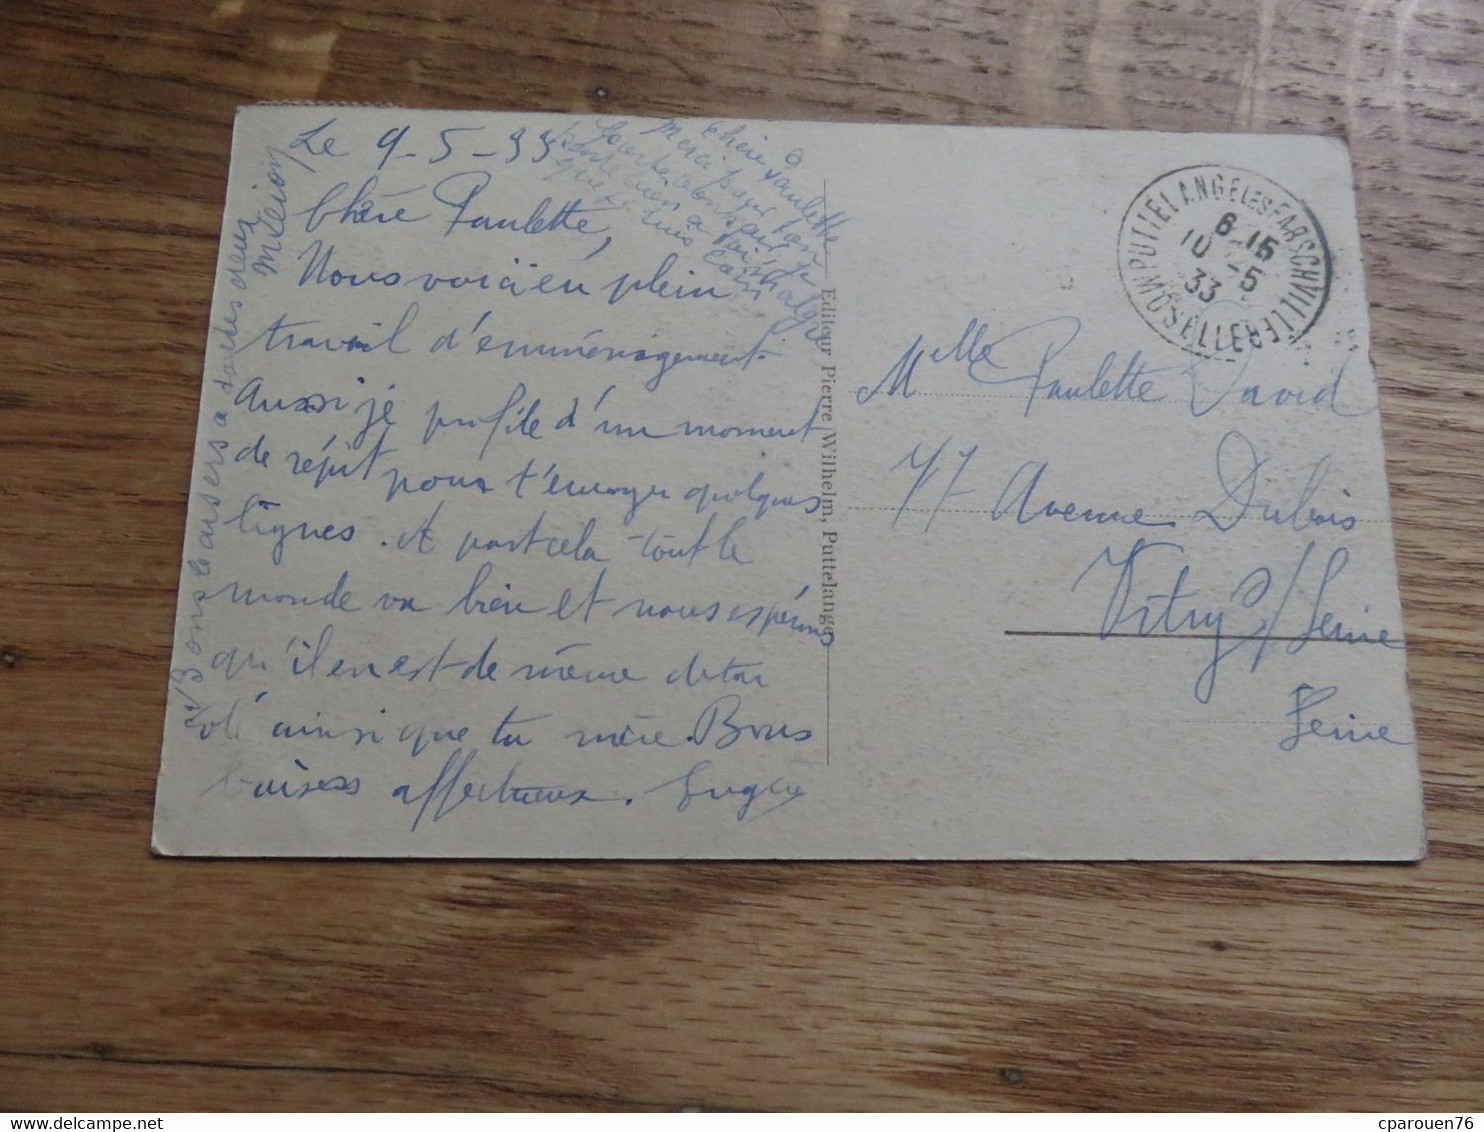 Le 9-5-33
Chère Paulette,
Nous voici en plein
travail d'emménagement.
Aussi je profite d'un moment
de répit pour t'envoyer quelques
lignes. A part cela tout le
monde va bien et nous espérons
qu'il en est de même de ton
côté ainsi que ta mère. Bons
baisers affectueux.
Chère Paulette
Merci pour ton
Bons baisers à toutes deux
Editeur Pierre Wilhelm, Puttelange
PUTTELANGE-LES-FARSCHVILLER
MOSELLE
6 15
10 -5
33
Mlle Paulette David
77 Avenue Dubois
Vitry s/Seine
Seine
cparouen76